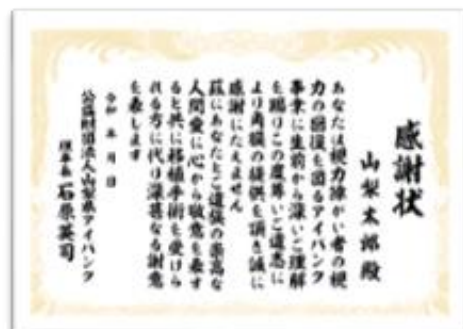 感謝状
山梨太郎 殿
あなたは視力障がい者の視
力の回復を図るアイバンク
事業に生前から深いご理解
を賜りこの度尊いご遺志に
より角膜の提供を頂き誠に
感謝にたえません
茲にあなたとご遺族の崇高な
人間愛に心から敬意を表す
ると共に移植手術を受けら
れる方に代り深甚なる謝意
を表します
令和 年 月 日
公益財団法人山梨県アイバンク
理事長 石原英司